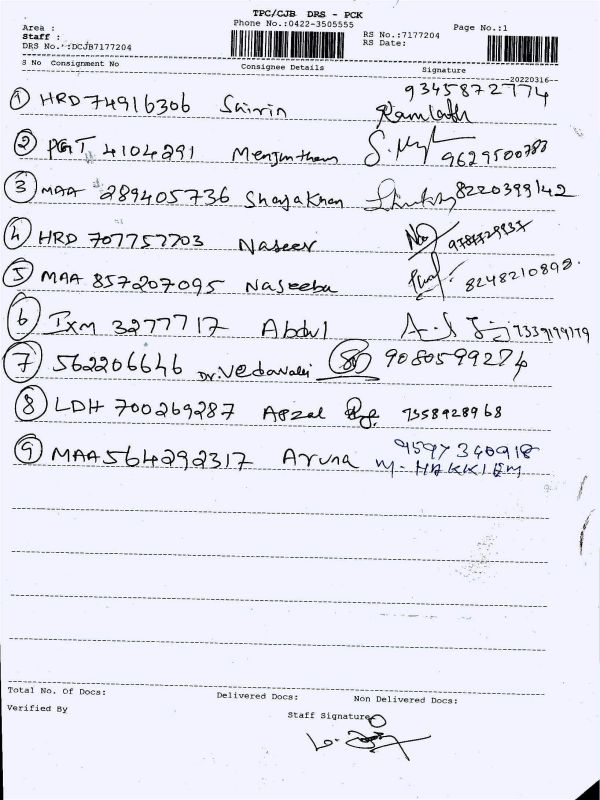 TPC/CJB DRS - PCK
Area : Phone No.:0422-3505555 Page No.:1
Staff : RS No.:7177204
DRS No.:DCJB7177204 RS Date:
S No Consignment No Consignee Details Signature
--20220316--
① HRD 74916306 Shirin 9345872774
Ramlath
② PGT 4104291 9629500788
③ MAA 289405736 Shajakhan 8220399142
④ HRD 707757703 Naseer
⑤ MAA 857207095 Naseeba 8248210898.
⑥ IXM 3277717 Abdul
⑦ 562206646 Dr. Vedavalli 9080599274
⑧ LDH 700269287 Afzal 7358928968
⑨ MAA 564292317 Aruna 9597340918
M. HAKKIEM
Total No. Of Docs: Delivered Docs: Non Delivered Docs:
Verified By Staff Signature